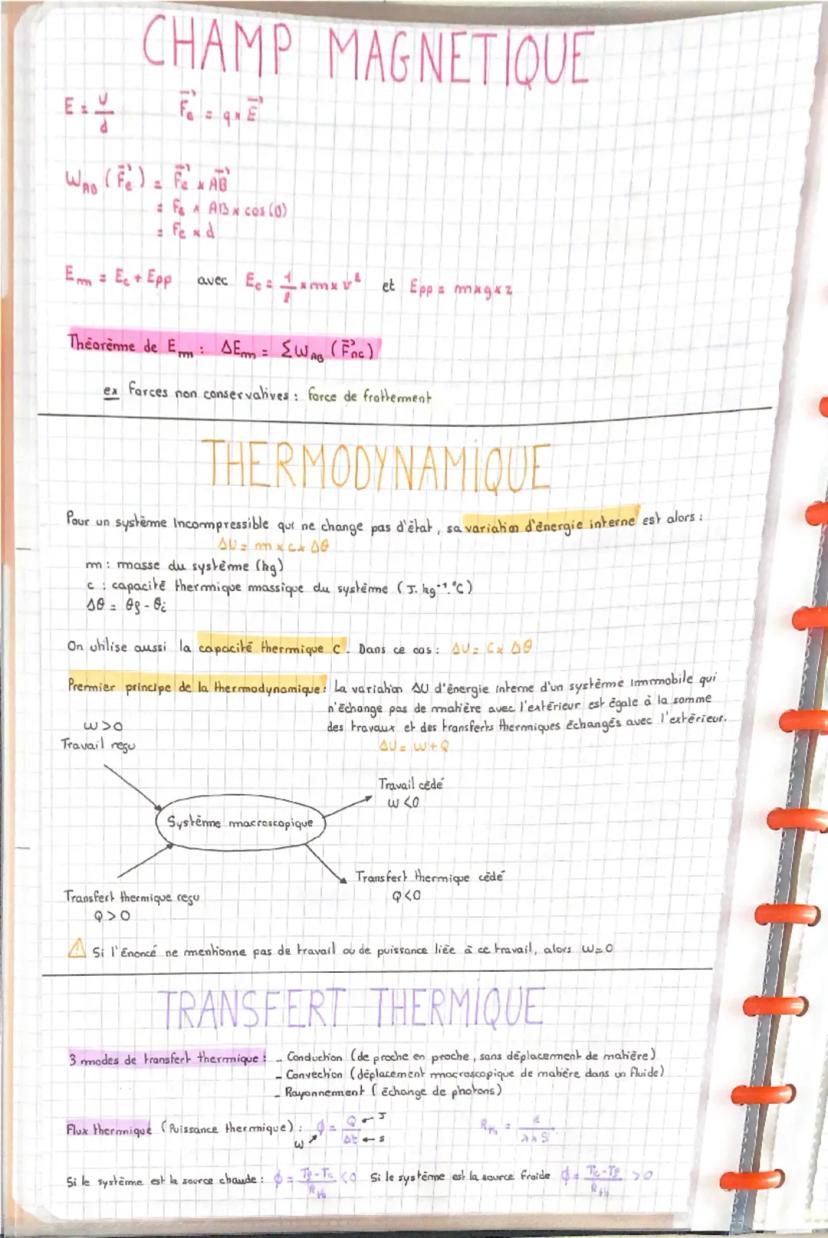 CHAMP MAGNETIQUE
E = U/d    F⃗e = q × E⃗
W_AB (F⃗e) = F⃗e × AB⃗
= Fe × AB × cos(0)
= Fe × d
Em = Ec + Epp avec Ec = 1/2 × m × v² et Epp = m × g × z
Théorème de Em : ΔEm = ΣW_AB (F⃗nc)
ex forces non conservatives : force de frottement
THERMODYNAMIQUE
Pour un système incompressible qui ne change pas d'état, sa variation d'énergie interne est alors :
ΔU = m × c × Δθ
m : masse du système (kg)
c : capacité thermique massique du système (J. kg⁻¹.°C)
Δθ = θf - θi
On utilise aussi la capacité thermique C. Dans ce cas : ΔU = C × Δθ
Premier principe de la thermodynamique : La variation ΔU d'énergie interne d'un système immobile qui
n'échange pas de matière avec l'extérieur est égale à la somme
des travaux et des transferts thermiques échangés avec l'extérieur.
ΔU = W + Q
W > 0
Travail reçu
Travail cédé
W < 0
Système macroscopique
Transfert thermique cédé
Q < 0
Transfert thermique reçu
Q > 0
⚠ Si l'énoncé ne mentionne pas de travail ou de puissance liée à ce travail, alors W = 0
TRANSFERT THERMIQUE
3 modes de transfert thermique : - Conduction (de proche en proche, sans déplacement de matière)
- Convection (déplacement macroscopique de matière dans un fluide)
- Rayonnement (échange de photons)
Flux thermique (Puissance thermique) : W → ϕ = Q/Δt ← J ← s    Rth = e/
Si le système est la source chaude : ϕ = Tf - Tc/Rth < 0 Si le système est la source froide ϕ = Tc - Tf/Rth > 0